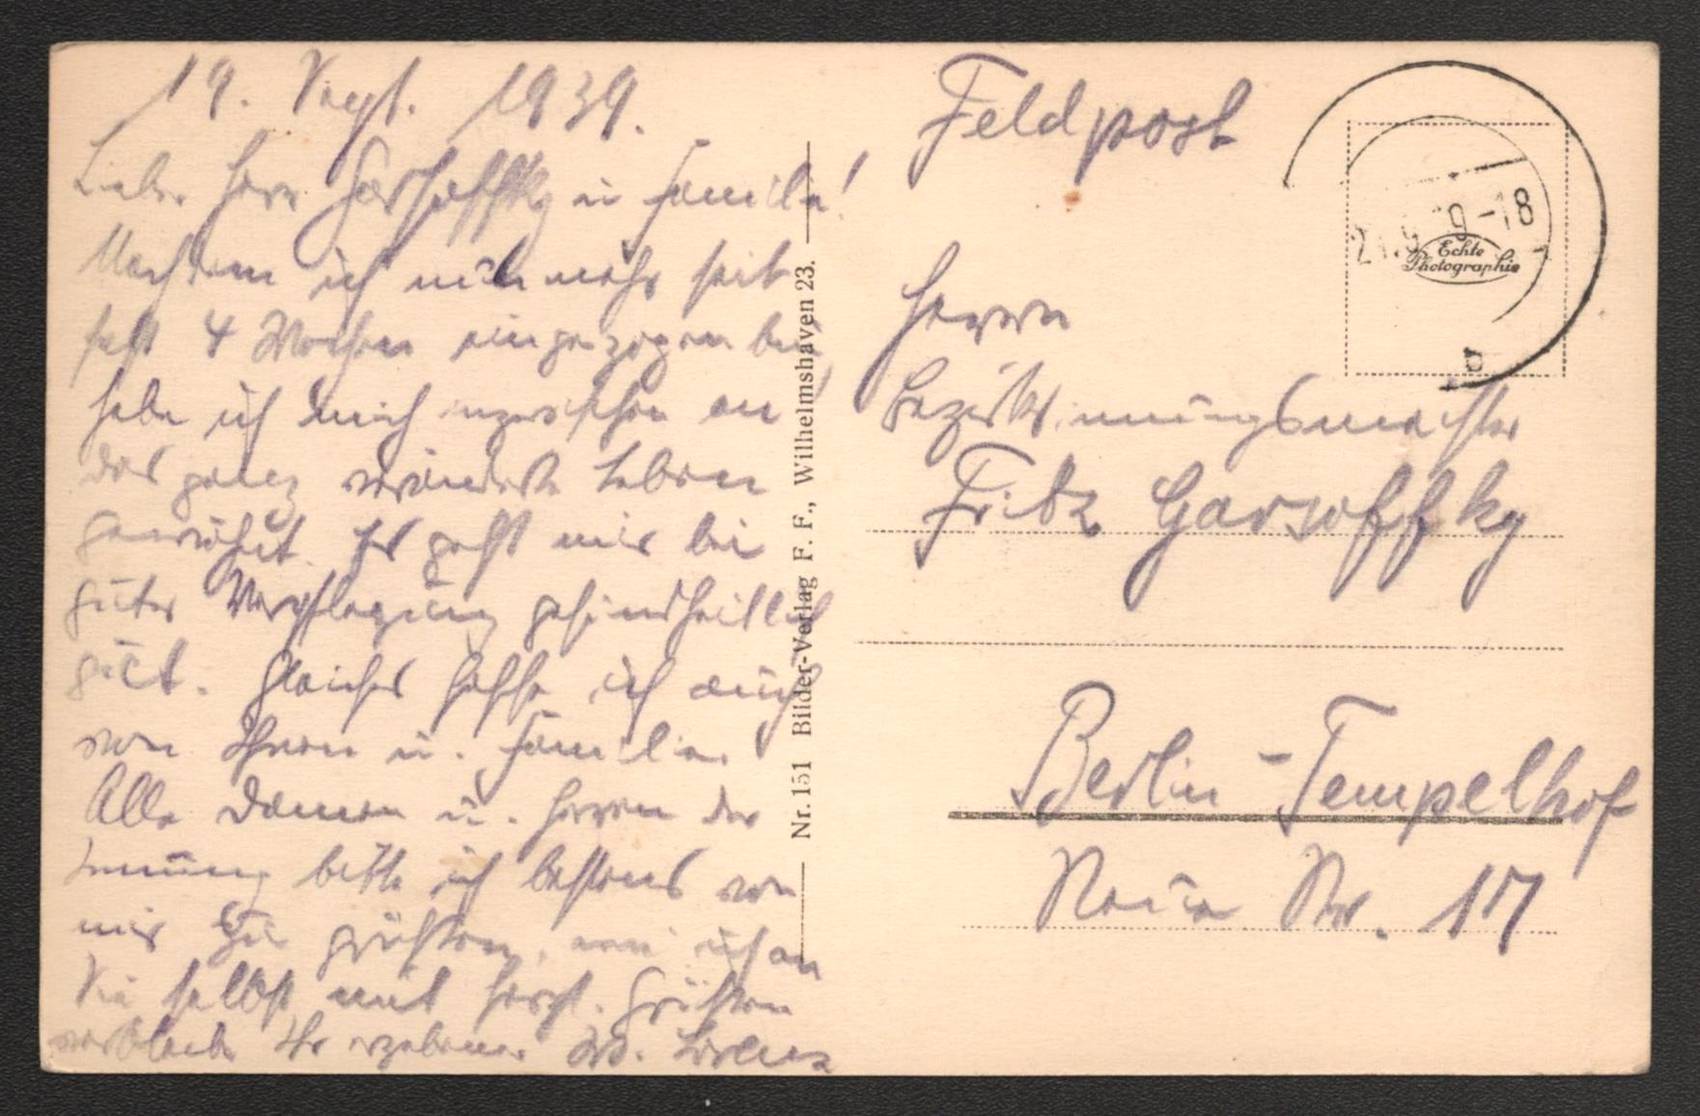 19. Sept. 1939.
Lieber Herr Garsoffky u. Familie!
Nachdem ich nunmehr seit
fast 4 Wochen eingezogen bin,
habe ich mich inzwischen an
das ganz veränderte Leben
gewöhnt. Es geht mir bei
guter Verpflegung gesundheitlich
gut. Gleiches hoffe ich auch
von Ihnen u. Familie.
Alle Damen u. Herren der
Innung bitte ich bestens von
mir zu grüßen, wie ich an
Sie selbst mit herzl. Grüßen
verbleibe Ihr ergebener
Nr. 151 Bilder-Verlag F. F., Wilhelmshaven 23.
Feldpost
-18
Echte
Photographie
b
Herrn
Bezirksinnungsmeister
Fritz Garsoffky
Berlin-Tempelhof
Neue Nr. 17